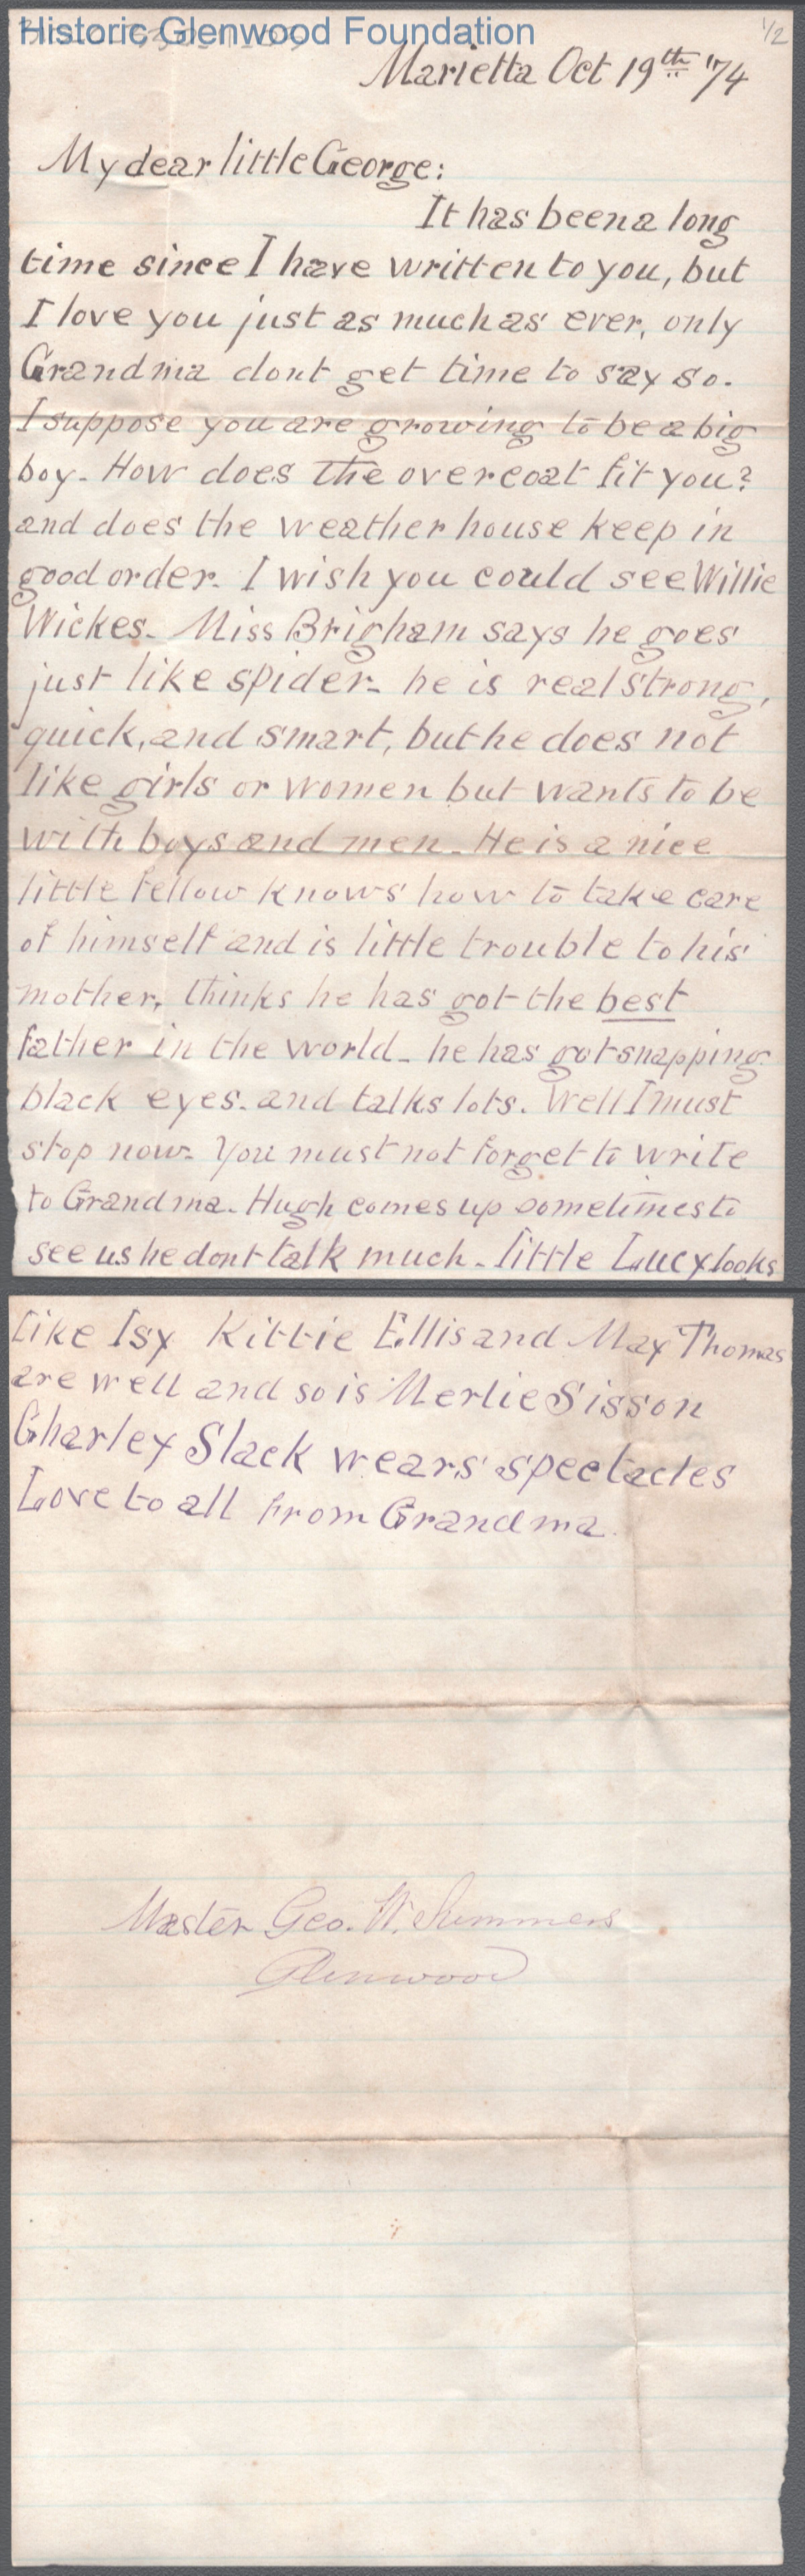 Historic Glenwood Foundation
1/2
Marietta Oct 19th '74
My dear little George:
It has been a long
time since I have written to you, but
I love you just as much as ever, only
Grandma dont get time to say so.
I suppose you are growing to be a big
boy. How does the overcoat fit you?
and does the weather house keep in
good order. I wish you could see Willie
Wickes. Miss Brigham says he goes
just like spider. he is real strong,
quick, and smart, but he does not
like girls or women but wants to be
with boys and men. He is a nice
little fellow knows how to take care
of himself and is little trouble to his
mother, thinks he has got the best
father in the world. he has got snapping
black eyes. and talks lots. Well I must
stop now. You must not forget to write
to Grandma. Hugh comes up sometimes to
see us he dont talk much. little Lucy looks
like Isy Kittie Ellis and May Thomas
are well and so is Mertie Sisson
Charley Slack wears spectacles
Love to all from Grandma.
Master Geo. W. Summers
Glenwood